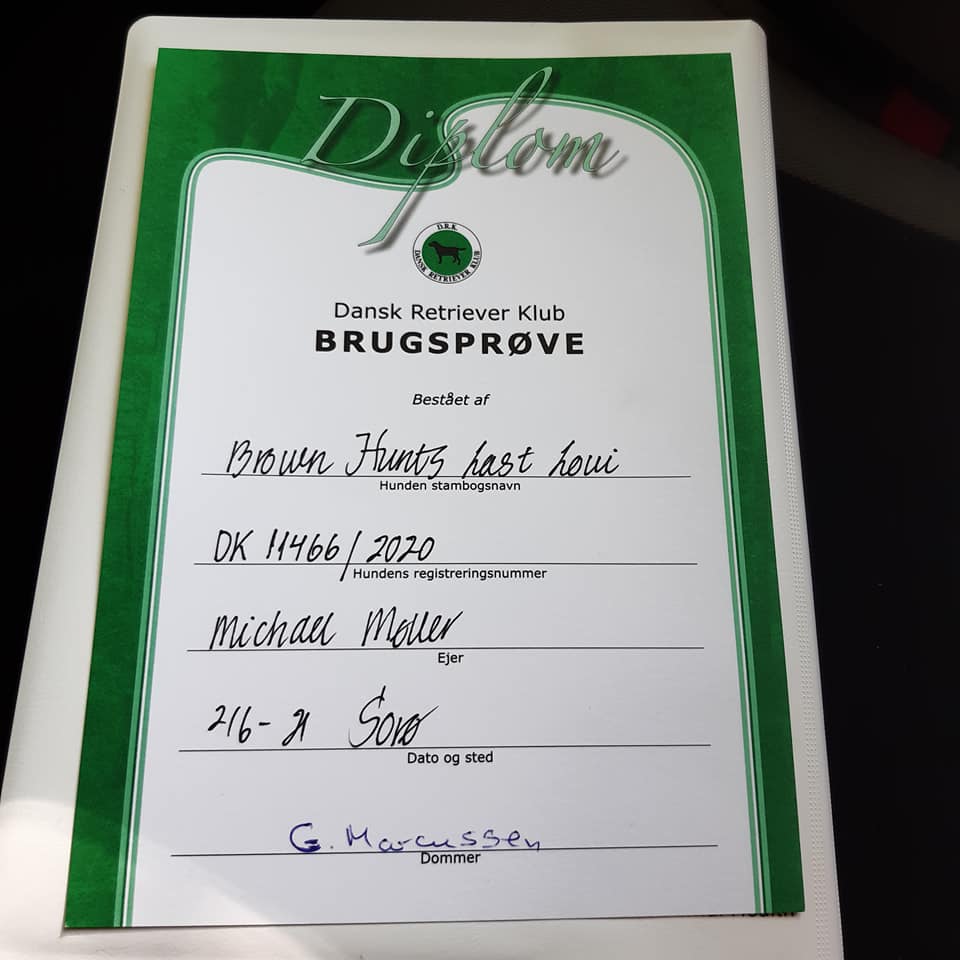 Diplom
D.R.K.
DANSK RETRIEVER KLUB
Dansk Retriever Klub
BRUGSPRØVE
Bestået af
Brown Hunts Last Loui
Hunden stambogsnavn
DK 11466/2020
Hundens registreringsnummer
Michael Møller
Ejer
2/6-21 Sorø
Dato og sted
G. Marcussen
Dommer